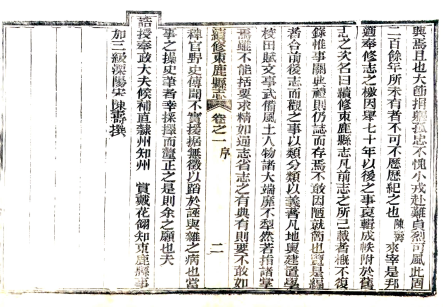 興焉且也大師捐軀孤忠不愧小戎赴難貞烈可風此周
二百餘年所未有者不可不歷歷紀之也陳壽來宰是邦
適奉修志之檄因舉七十年以後之事裒輯成帙附於舊
志之次名曰續修東鹿縣志凡前志之所已載者概不復
錄惟事關典禮則仍誌而存焉不敢因陋就簡也覽是編
者合前後志而觀之事以類分類以義著凡地輿建置學
校田賦文事武備風土人物諸大端靡不犁然若指諸掌
焉雖不能括要求精如通志省志之有典有則要不敢如
續修東鹿縣志 卷之一 序 二
稗官野史傳聞不實援据無徵以蹈於誣與雜之病也當
事之操史筆者幸採擇而釐正之是則余之願也夫
誥授奉政大夫候補直隸州知州 賞戴花翎知束鹿縣事
加三級溧陽宋陳壽撰